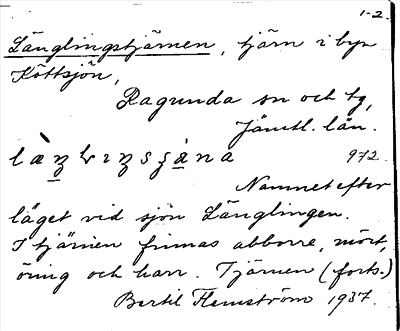 1-2.
Länglingstjärnen, tjärn i byn
Köttsjön,
Ragunda sn och tg,
Jämtl. län.
972.
Namnet efter
läget vid sjön Länglingen.
I tjärnen finnas abborre, mört,
öring och harr. Tjärnen (forts.)
Bertil Flemström 1937.